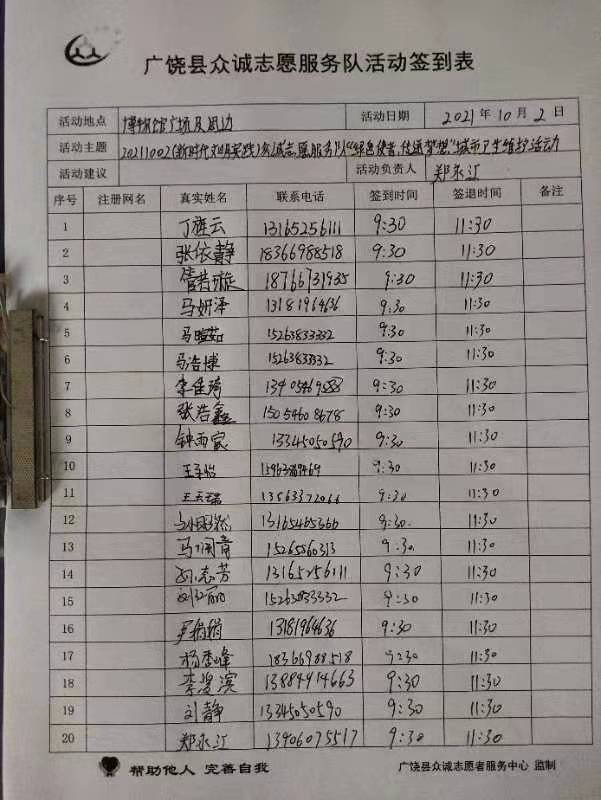 广饶县众诚志愿服务队活动签到表
活动地点 博物馆广场及周边 活动日期 2021年10月2日
活动主题 20211002(新时代文明实践)众诚志愿服务队“绿色使者,传递梦想”城市卫生维护活动
活动建议 活动负责人 郑永江
序号 注册网名 真实姓名 联系电话 签到时间 签退时间 备注
1 丁旌云 13165256111 9:30 11:30
2 张依静 18366988518 9:30 11:30
3 信若璇 18766731935 9:30 11:30
4 马妍泽 13181964636 9:30 11:30
5 15263833332 9:30 11:30
6 马浩博 15263833332 9:30 11:30
7 李佳琦 9:30 11:30
8 张浩鑫 15054608678 9:30 11:30
9 钟雨宸 13345050590 9:30 11:30
10 王子怡 9:30 11:30
11 13563372066 9:30 11:30
12 13165465366 9:30 11:30
13 马闰音 15265560313 9:30 11:30
14 孙志芳 13165256111 9:30 11:30
15 刘红丽 15263833332 9:30 11:30
16 13181964636 9:30 11:30
17 杨秀峰 18366988518 9:30 11:30
18 李爱滨 13884914663 9:30 11:30
19 刘静 13345050590 9:30 11:30
20 郑永江 13406075517 9:30 11:30
帮助他人 完善自我 广饶县众诚志愿者服务中心 监制